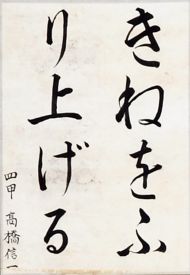 きねをふ
り上げる
四甲 高橋信一